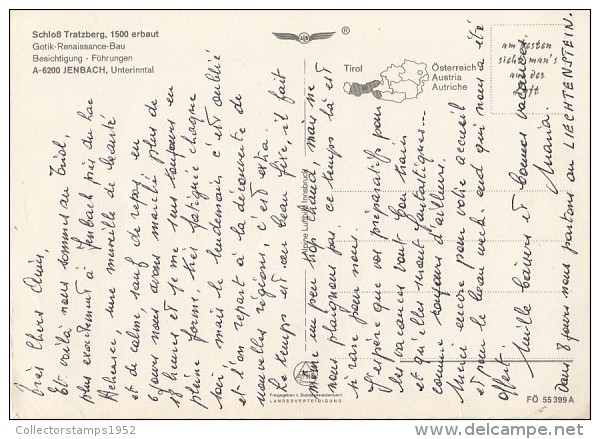 Schloß Tratzberg, 1500 erbaut
Gotik-Renaissance-Bau
Besichtigung - Führungen
A-6200 JENBACH, Unterinntal
®
Tirol
Österreich
Austria
Autriche
am besten
sieht man's
aus der
Luft
Alpine Luftbild Innsbruck
Très Chers Amis,
Et voilà nous sommes au Tirol,
plus exactement à Jenbach près du lac
Achensee, une merveille de beauté
et de calme, sauf de repos, en
6 jours nous avons marché plus de
18 heures et je me sens toujours en
pleine forme, très fatigué chaque
soir, mais le lendemain, c'est oublié
et l'on repart à la découverte de
nouvelles régions, c'est extra.
Le temps est au beau fixe, il fait
même un peu trop chaud, mais ne
nous plaignons pas, ce temps là est
si rare pour nous.
J'espère que vos préparatifs pour
les vacances vont bon train
et qu'elles seront fantastiques...
comme toujours d'ailleurs.
Merci encore pour votre accueil
et pour le beau week-end qui nous a été
offert. Mille baisers et bonnes vacances.
Maria.
Dans 8 jours nous partons au LIECHTENSTEIN.
Freigegeben v. Bundesministerium f.
LANDESVERTEIDIGUNG
FÖ 55 399 A
Collectorstamps1952
delcampe.net